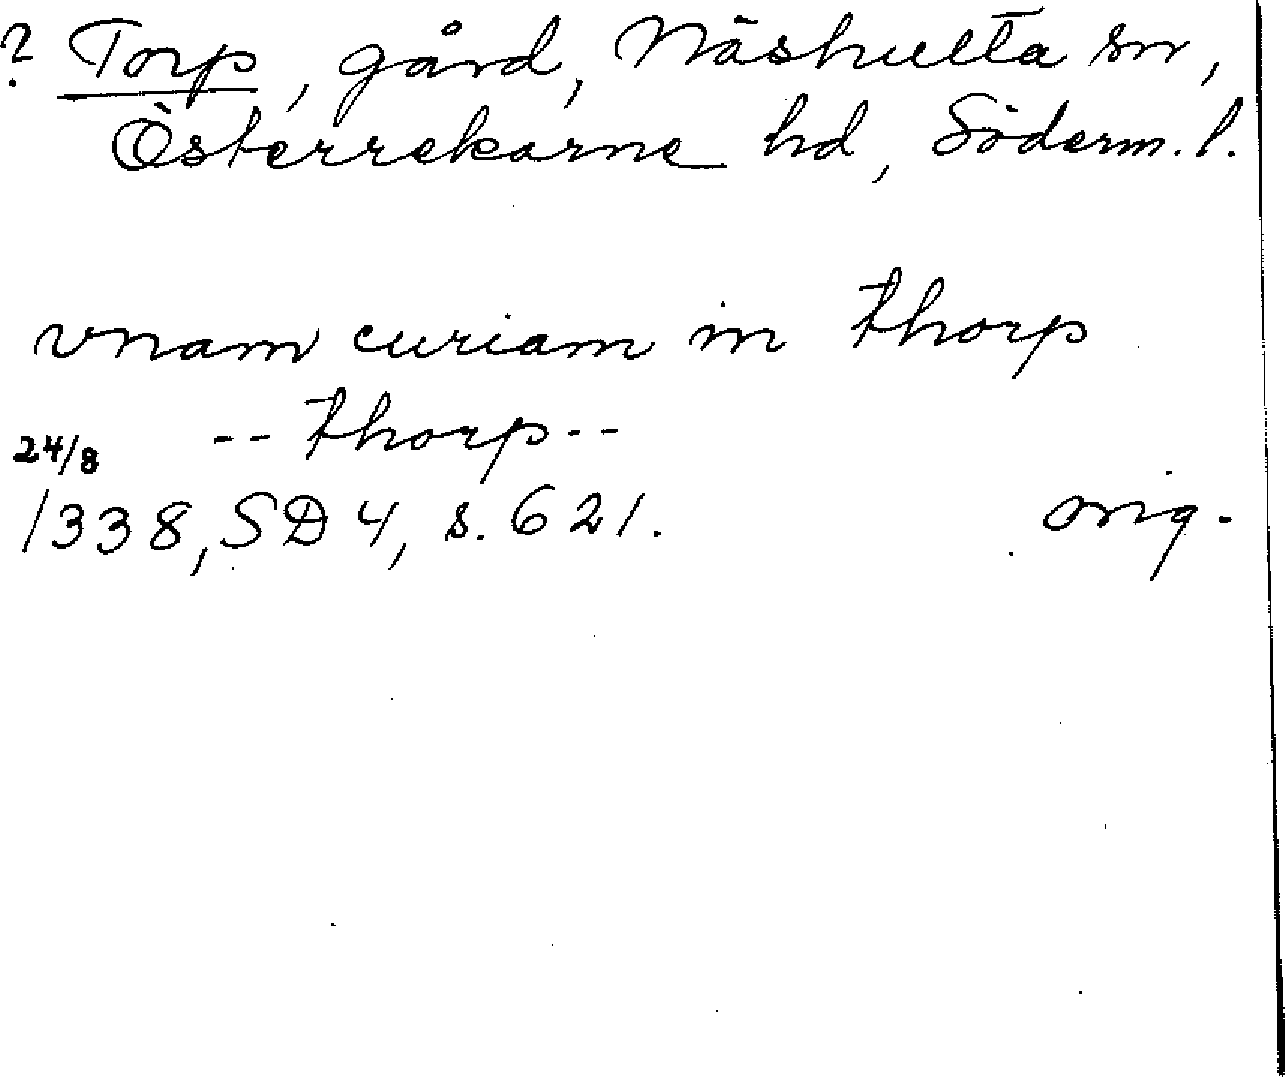 ? Torp, gård, Näshulta sn,
Österrekarne hd, Söderm. l.
vnam curiam in thorp
-- thorp --
24/8
1338, SD 4, s. 621. orig.